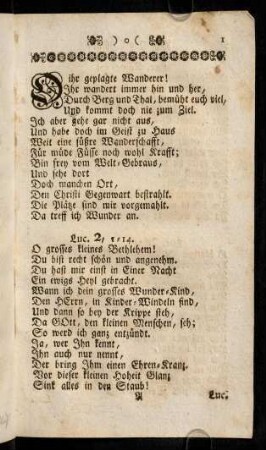 ) o (
1
O ihr geplagte Wanderer!
Ihr wandert immer hin und her,
Durch Berg und Thal, bemüht euch viel,
Und kommt doch nie zum Ziel.
Ich aber gehe gar nicht aus,
Und habe doch im Geist zu Haus
Weit eine süßre Wanderschafft,
Für müde Füsse noch wohl Krafft;
Bin frey vom Welt-Gebraus,
Und sehe dort
Doch manchen Ort,
Den Christi Gegenwart bestrahlt.
Die Plätze sind mir vorgemahlt.
Da treff ich Wunder an.
Luc. 2, 1-14.
O grosses kleines Bethlehem!
Du bist recht schön und angenehm.
Du hast mir einst in Einer Nacht
Ein ewigs Heyl gebracht.
Wann ich dein grosses Wunder-Kind,
Den HErrn, in Kinder-Windeln find,
Und dann so bey der Krippe steh,
Da GOtt, den kleinen Menschen, seh;
So werd ich ganz entzündt.
Ja, wer Ihn kennt,
Ihn auch nur nennt,
Der bring Ihm einen Ehren-Kranz.
Vor dieser kleinen Hoheit Glanz
Sink alles in den Staub!
A
Luc.